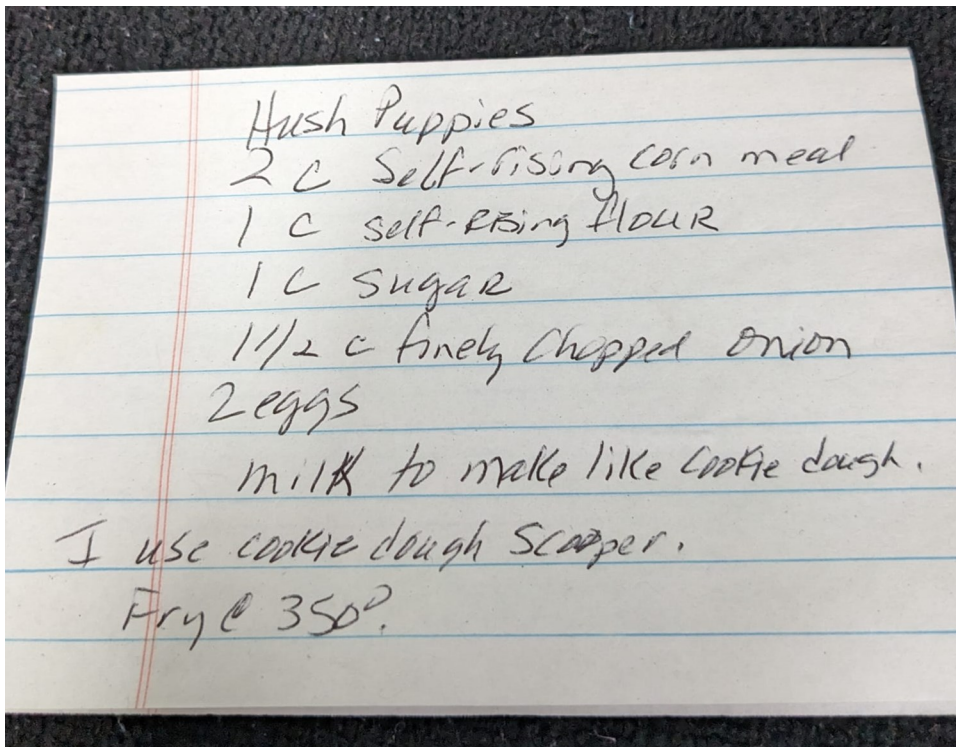 Hush Puppies
2 C Self-rising corn meal
1 C self-Rising flouR
1 C SugaR
1 1/2 c finely Chopped onion
2 eggs
milk to make like cookie dough.
I use cookie dough Scooper.
Fry @ 350°.